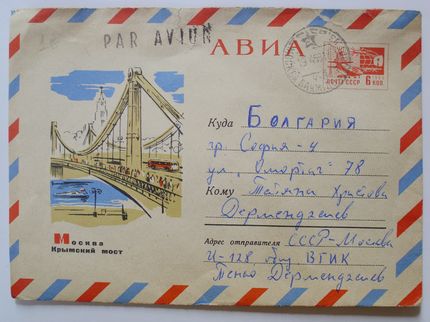 PAR AVION
АВИА
ПОЧТА СССР 6 КОП.
Куда Болгария
гр. София - 4
ул. "Омортаг" 78
Кому Татяна Христова
Дерменджиев
Адрес отправителя СССР - Москва
И-128 ВГИК
Теньо Дерменджиев
Москва
Крымский мост